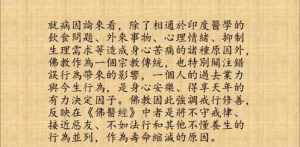 就病因論來看，除了相通於印度醫學的
飲食問題、外來事物、心理情緒、抑制
生理需求等造成身心苦痛的諸種原因外，
佛教作為一個宗教傳統，也特別關注錯
誤行為帶來的影響，一個人的過去業力
與今生行為，是身心安樂、得享天年的
有力決定因子。佛教因此強調戒行修善，
反映在《佛醫經》中者是將不守戒律、
接近惡友、不如法行和其他不懂養生的
行為並列，作為壽命縮減的原因。